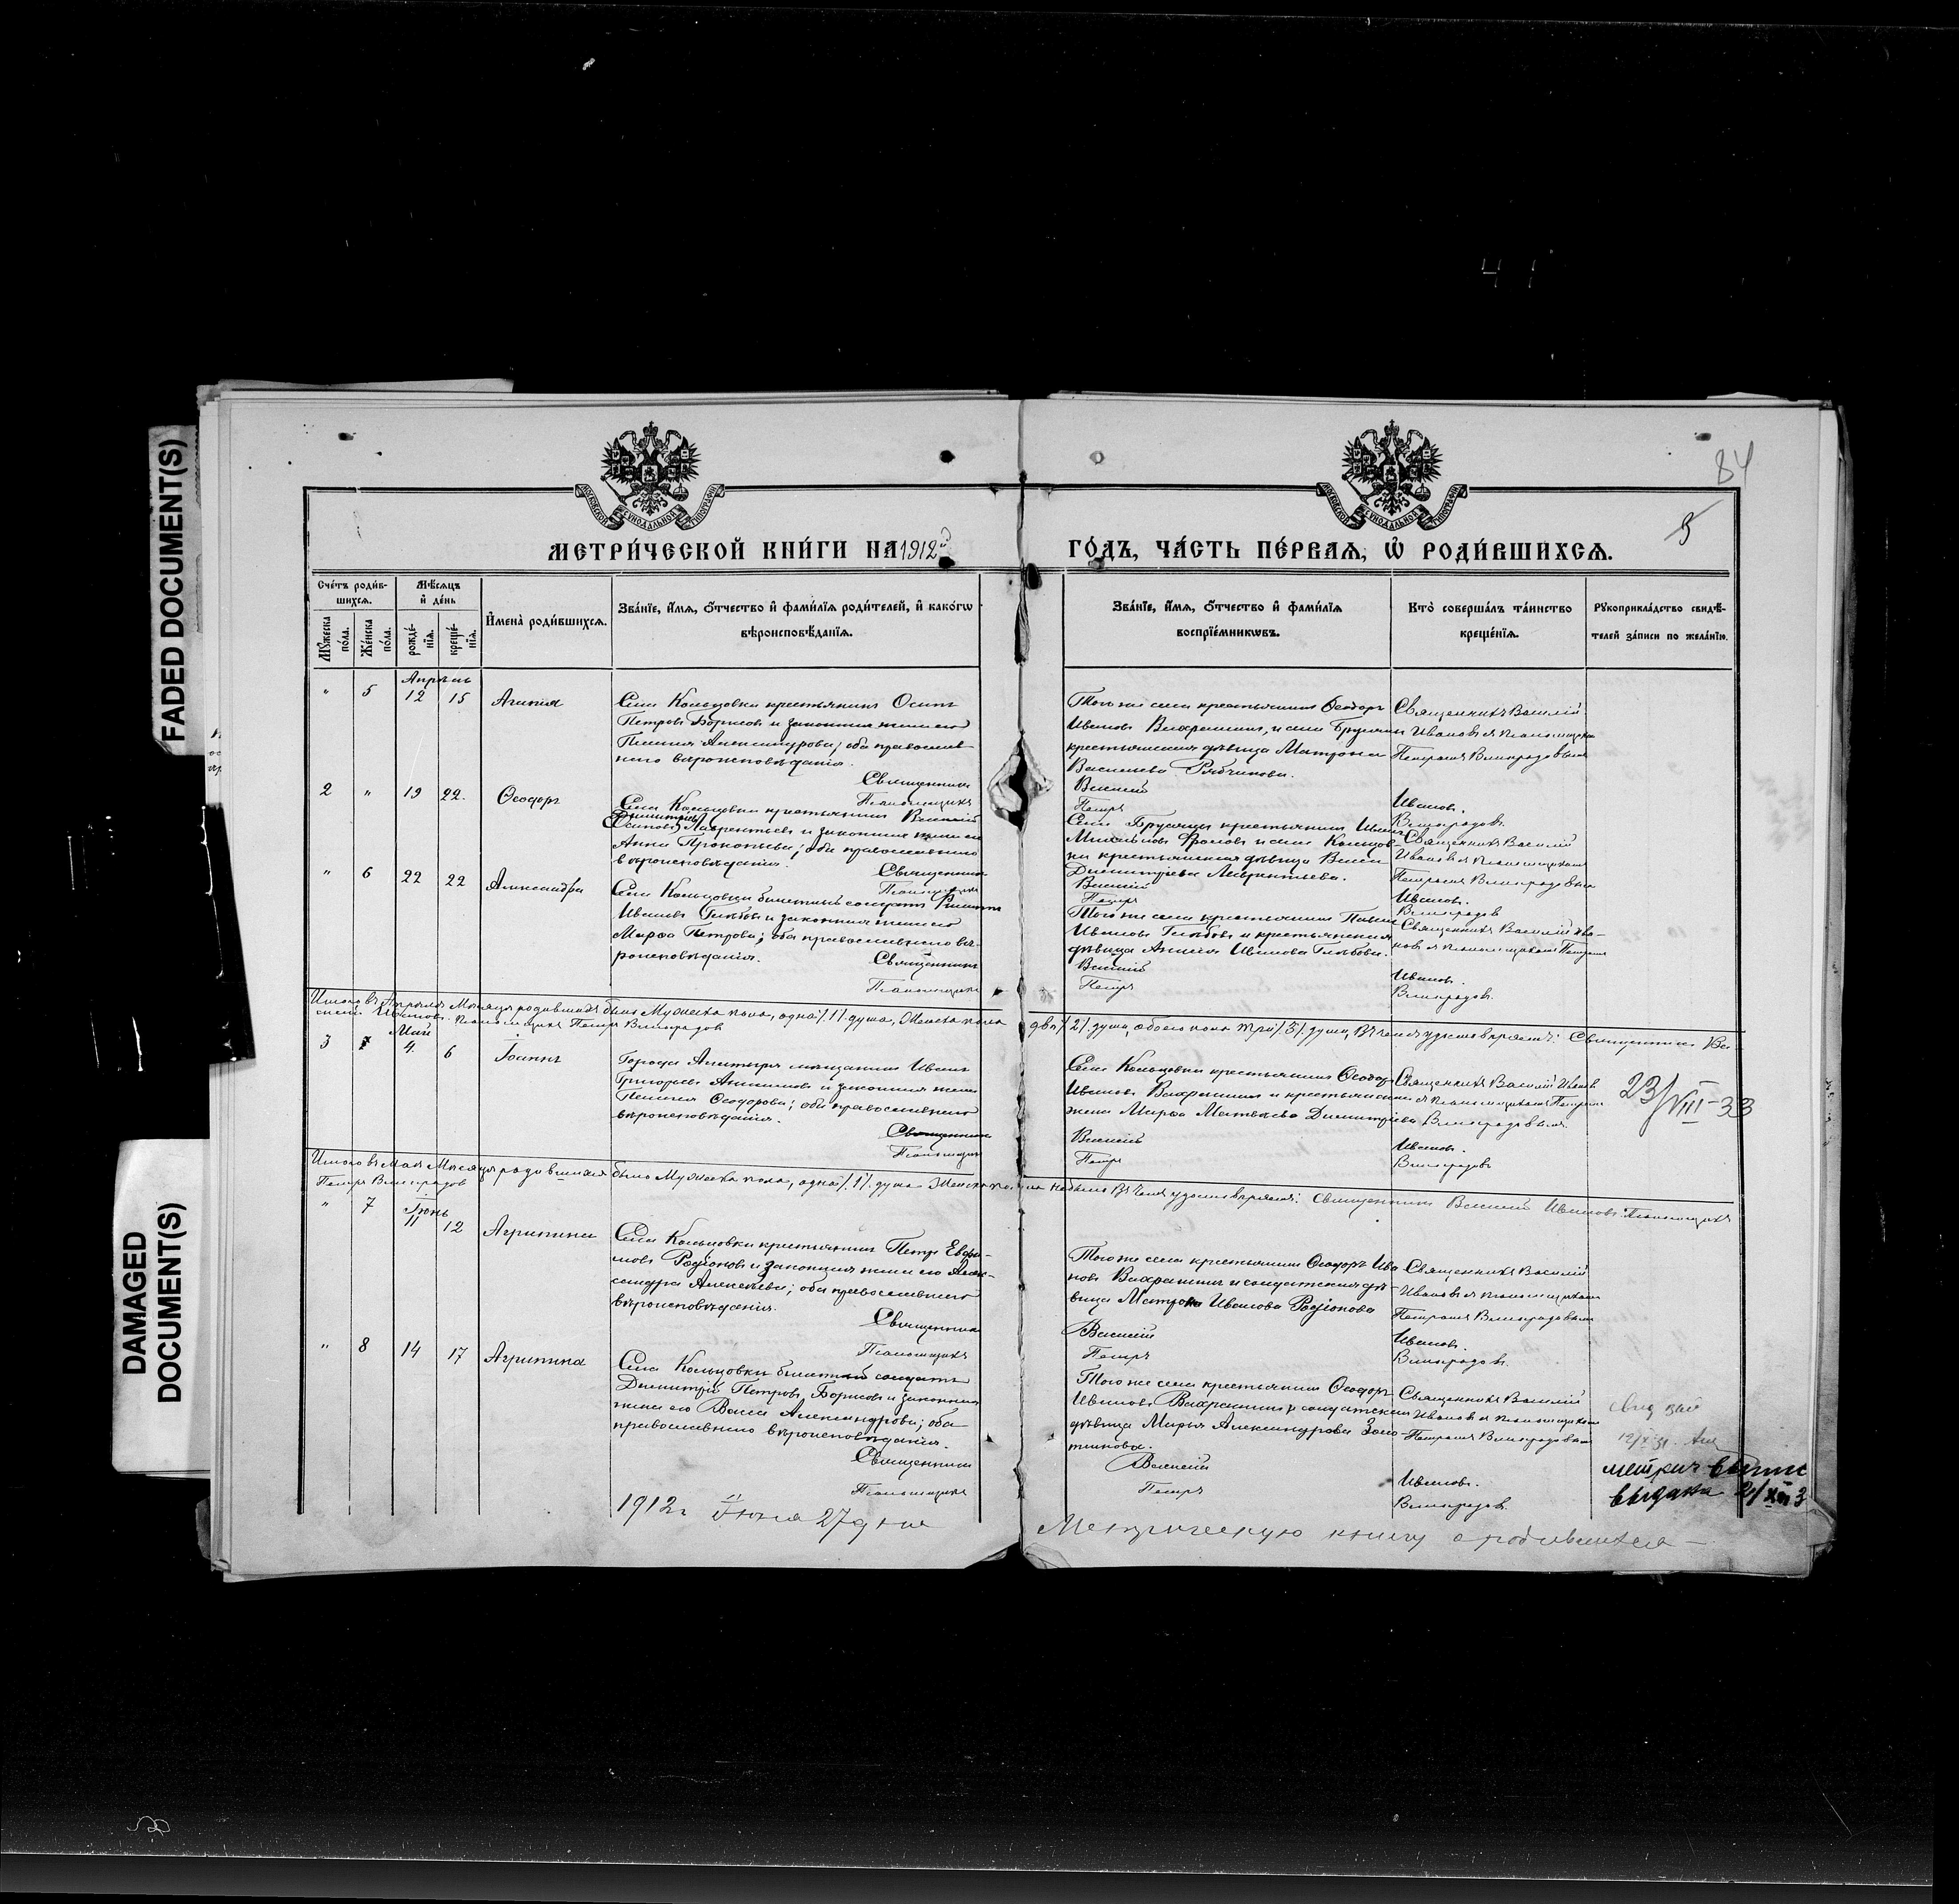 FADED DOCUMENT(S)
DAMAGED
DOCUMENT(S)
41
84
5
МОСКОВСКОЙ СѴНОДАЛЬНОЙ ТИПОГРАФІИ
МОСКОВСКОЙ СѴНОДАЛЬНОЙ ТИПОГРАФІИ
МЕТРИ́ЧЕСКОЙ КНИ́ГИ НА 1912й
ГО́ДЪ, ЧА́СТЬ ПЕ́РВАѦ, Ѽ РОДИ́ВШИХСѦ.
Сче́тъ роди́в-
шихсѧ.
Мѣ́сѧцъ
и҆ де́нь
Мꙋ́жеска
по́ла.
Же́нска
по́ла.
рожде́-
нїѧ.
креще́-
нїѧ.
И҆мена̀ роди́вшихсѧ.
Зва́нїе, и҆́мѧ, ѻ҆́тчество и҆ фами́лїѧ роди́телей, и҆ како́гѡ
вѣроисповѣ́данїѧ.
Зва́нїе, и҆́мѧ, ѻ҆́тчество и҆ фами́лїѧ
воспрїе́мникѡвъ.
Кто̀ соверша́лъ та́инство
креще́нїѧ.
Рꙋкоприкла́дство свидѣ́-
телей за́писи по жела́нїю.
Апрѣль
" 5 12 15 Агапія
Села Кольцовки крестьянинъ Осипъ
Петровъ Борисовъ и законная жена его
Пелагія Александрова; оба православ-
наго вѣроисповѣданія.
Священникъ
Псаломщикъ
Того же села крестьянинъ Ѳеодоръ
Ивановъ Вахрамѣевъ, и села Брусяны
крестьянская дѣвица Матрона
Васильева Рябчикова.
Василій
Петръ
Священникъ Василій
Ивановъ и псаломщикъ
Петромъ Виноградовымъ
Ивановъ.
Виноградовъ.
2 " 19 22. Ѳеодоръ
Села Кольцовки крестьянинъ Василій
Димитріевъ
Осиповъ Лаврентьевъ и законная жена его
Анна Прокопьева; оба православнаго
вѣроисповѣданія.
Священникъ
Псаломщикъ
Села Брусяны крестьянинъ Иванъ
Михайловъ Фроловъ и села Кольцов-
ки крестьянская дѣвица Васса
Димитріева Лаврентьева.
Василій
Петръ
Священникъ Василій
Ивановъ и псаломщикомъ
Петромъ Виноградовымъ
Ивановъ.
Виноградовъ
" 6 22 22 Александра
Села Кольцовки билетный солдатъ Филиппъ
Ивановъ Глѣбовъ и законная жена его
Марѳа Петрова; оба православнаго вѣ-
роисповѣданія.
Священникъ
Псаломщикъ
Того же села крестьянинъ Павелъ
Ивановъ Глѣбовъ и крестьянская
дѣвица Анисія Иванова Глѣбова.
Василій
Петръ
Священникъ Василій Ива-
новъ и псаломщикомъ Петромъ
Ивановъ.
Виноградовъ.
Итого въ Апрѣлѣ Мѣсяцѣ родившихся было Мужеска пола, одна /1/ душа, Женска пола двѣ /2/ души, обоего пола три /3/ души, Въ чемъ и удостовѣряемъ: Священникъ Ва-
силій Ивановъ. Псаломщикъ Петръ Виноградовъ
Май
3 4. 6 Іоаннъ
Города Алатыря мѣщанинъ Иванъ
Григорьевъ Анисимовъ и законная жена
Пелагія Ѳеодорова; оба православнаго
вѣроисповѣданія.
Священникъ
Псаломщикъ
Села Кольцовки крестьянинъ Ѳеодоръ
Ивановъ Вахрамѣевъ и крестьянская
жена Марѳа Матвѣева Димитріева
Василій
Петръ
Священникъ Василій Ивановъ
и псаломщикомъ Петромъ
Виноградовымъ.
Ивановъ.
Виноградовъ
23/VIII-33
Итого въ Маѣ Мѣсяцѣ родившихся было Мужеска пола, одна /1/ душа Женска пола не было Въ чемъ удостовѣряемъ: Священникъ Василій Ивановъ. Псаломщикъ
Петръ Виноградовъ
Іюнь
" 7 11 12 Агрипина
Села Кольцовки крестьянинъ Петръ Евфи-
мовъ Родіоновъ и законная жена его Алек-
сандра Алексѣева; оба православнаго
вѣроисповѣданія.
Священникъ
Псаломщикъ
Того же села крестьянинъ Ѳеодоръ Ива-
новъ Вахрамѣевъ и солдатская дѣ-
вица Матрона Иванова Родіонова
Василій
Петръ
Священникъ Василій
Ивановъ и псаломщикомъ
Петромъ Виноградовымъ
Ивановъ.
Виноградовъ.
" 8 14 17 Агрипина
Села Кольцовки билетный солдатъ
Димитрій Петровъ Борисовъ и законная
жена его Васса Александрова; оба
православнаго вѣроисповѣданія.
Священникъ
Псаломщикъ
Того же села крестьянинъ Ѳеодоръ
Ивановъ Вахрамѣевъ и солдатская
дѣвица Марья Александрова Золо-
тникова.
Василій
Петръ
Священникъ Василій
Ивановъ и псаломщикомъ
Петромъ Виноградовымъ
Ивановъ.
Виноградовъ.
метрич выпис
выдана
1912 г Іюня 27 дня
Метрическую книгу о родившихся